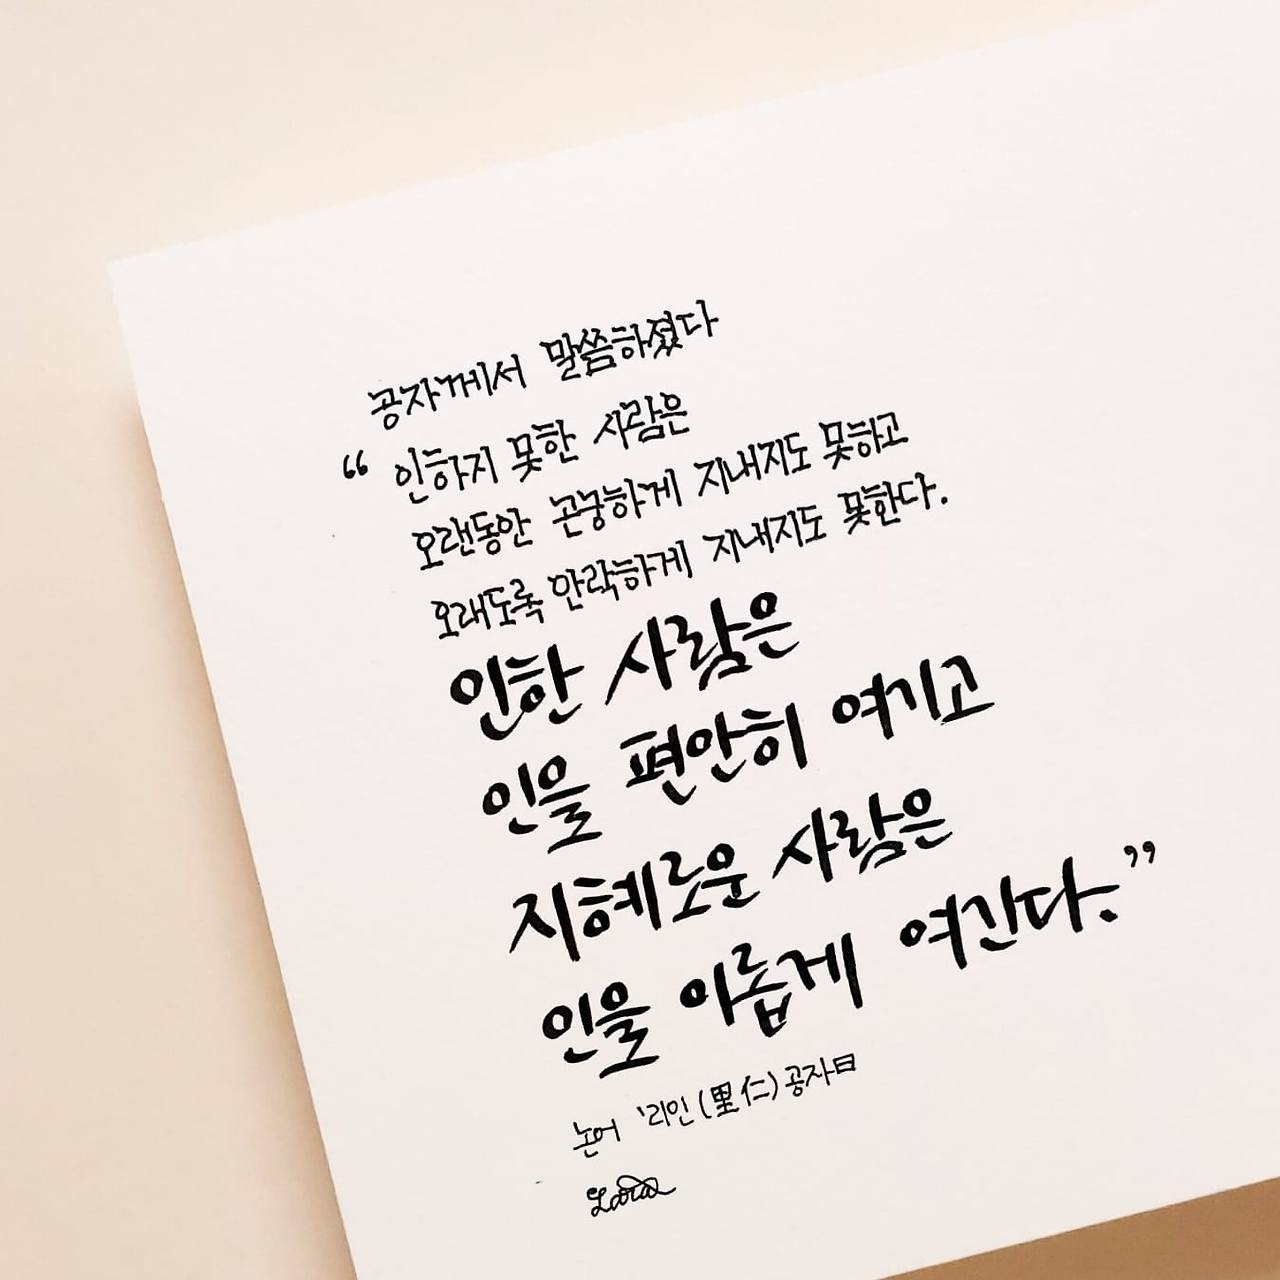 공자께서 말씀하셨다
“인하지 못한 사람은
오랜동안 곤궁하게 지내지도 못하고
오래도록 안락하게 지내지도 못한다.
인한 사람은
인을 편안히 여기고
지혜로운 사람은
인을 이롭게 여긴다.”
논어 '리인(里仁)공자曰